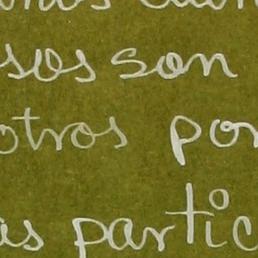 sos son
otros por
as partic